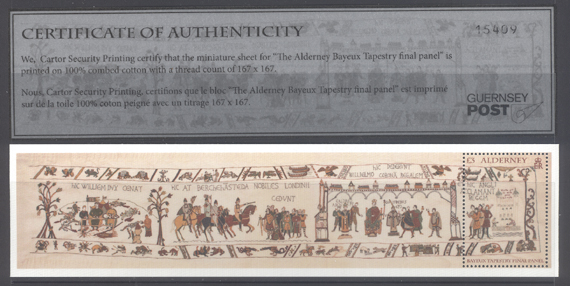 CERTIFICATE OF AUTHENTICITY
15409
We, Cartor Security Printing certify that the miniature sheet for "The Alderney Bayeux Tapestry final panel" is
printed on 100% combed cotton with a thread count of 167 x 167.
Nous, Cartor Security Printing, certifions que le bloc "The Alderney Bayeux Tapestry final panel" est imprimé
sur de la toile 100% coton peigné avec un titrage 167 x 167.
GUERNSEY
POST
£3 ALDERNEY
HIC WILLELM DVX
HIC AT BERCHEHASTEDA NOBILES LONDINII
CEDVNT
HIC DEDERVNT
WILLELMO CORONA REGALEM
HIC ANGLI
REGEM
BAYEUX TAPESTRY FINAL PANEL